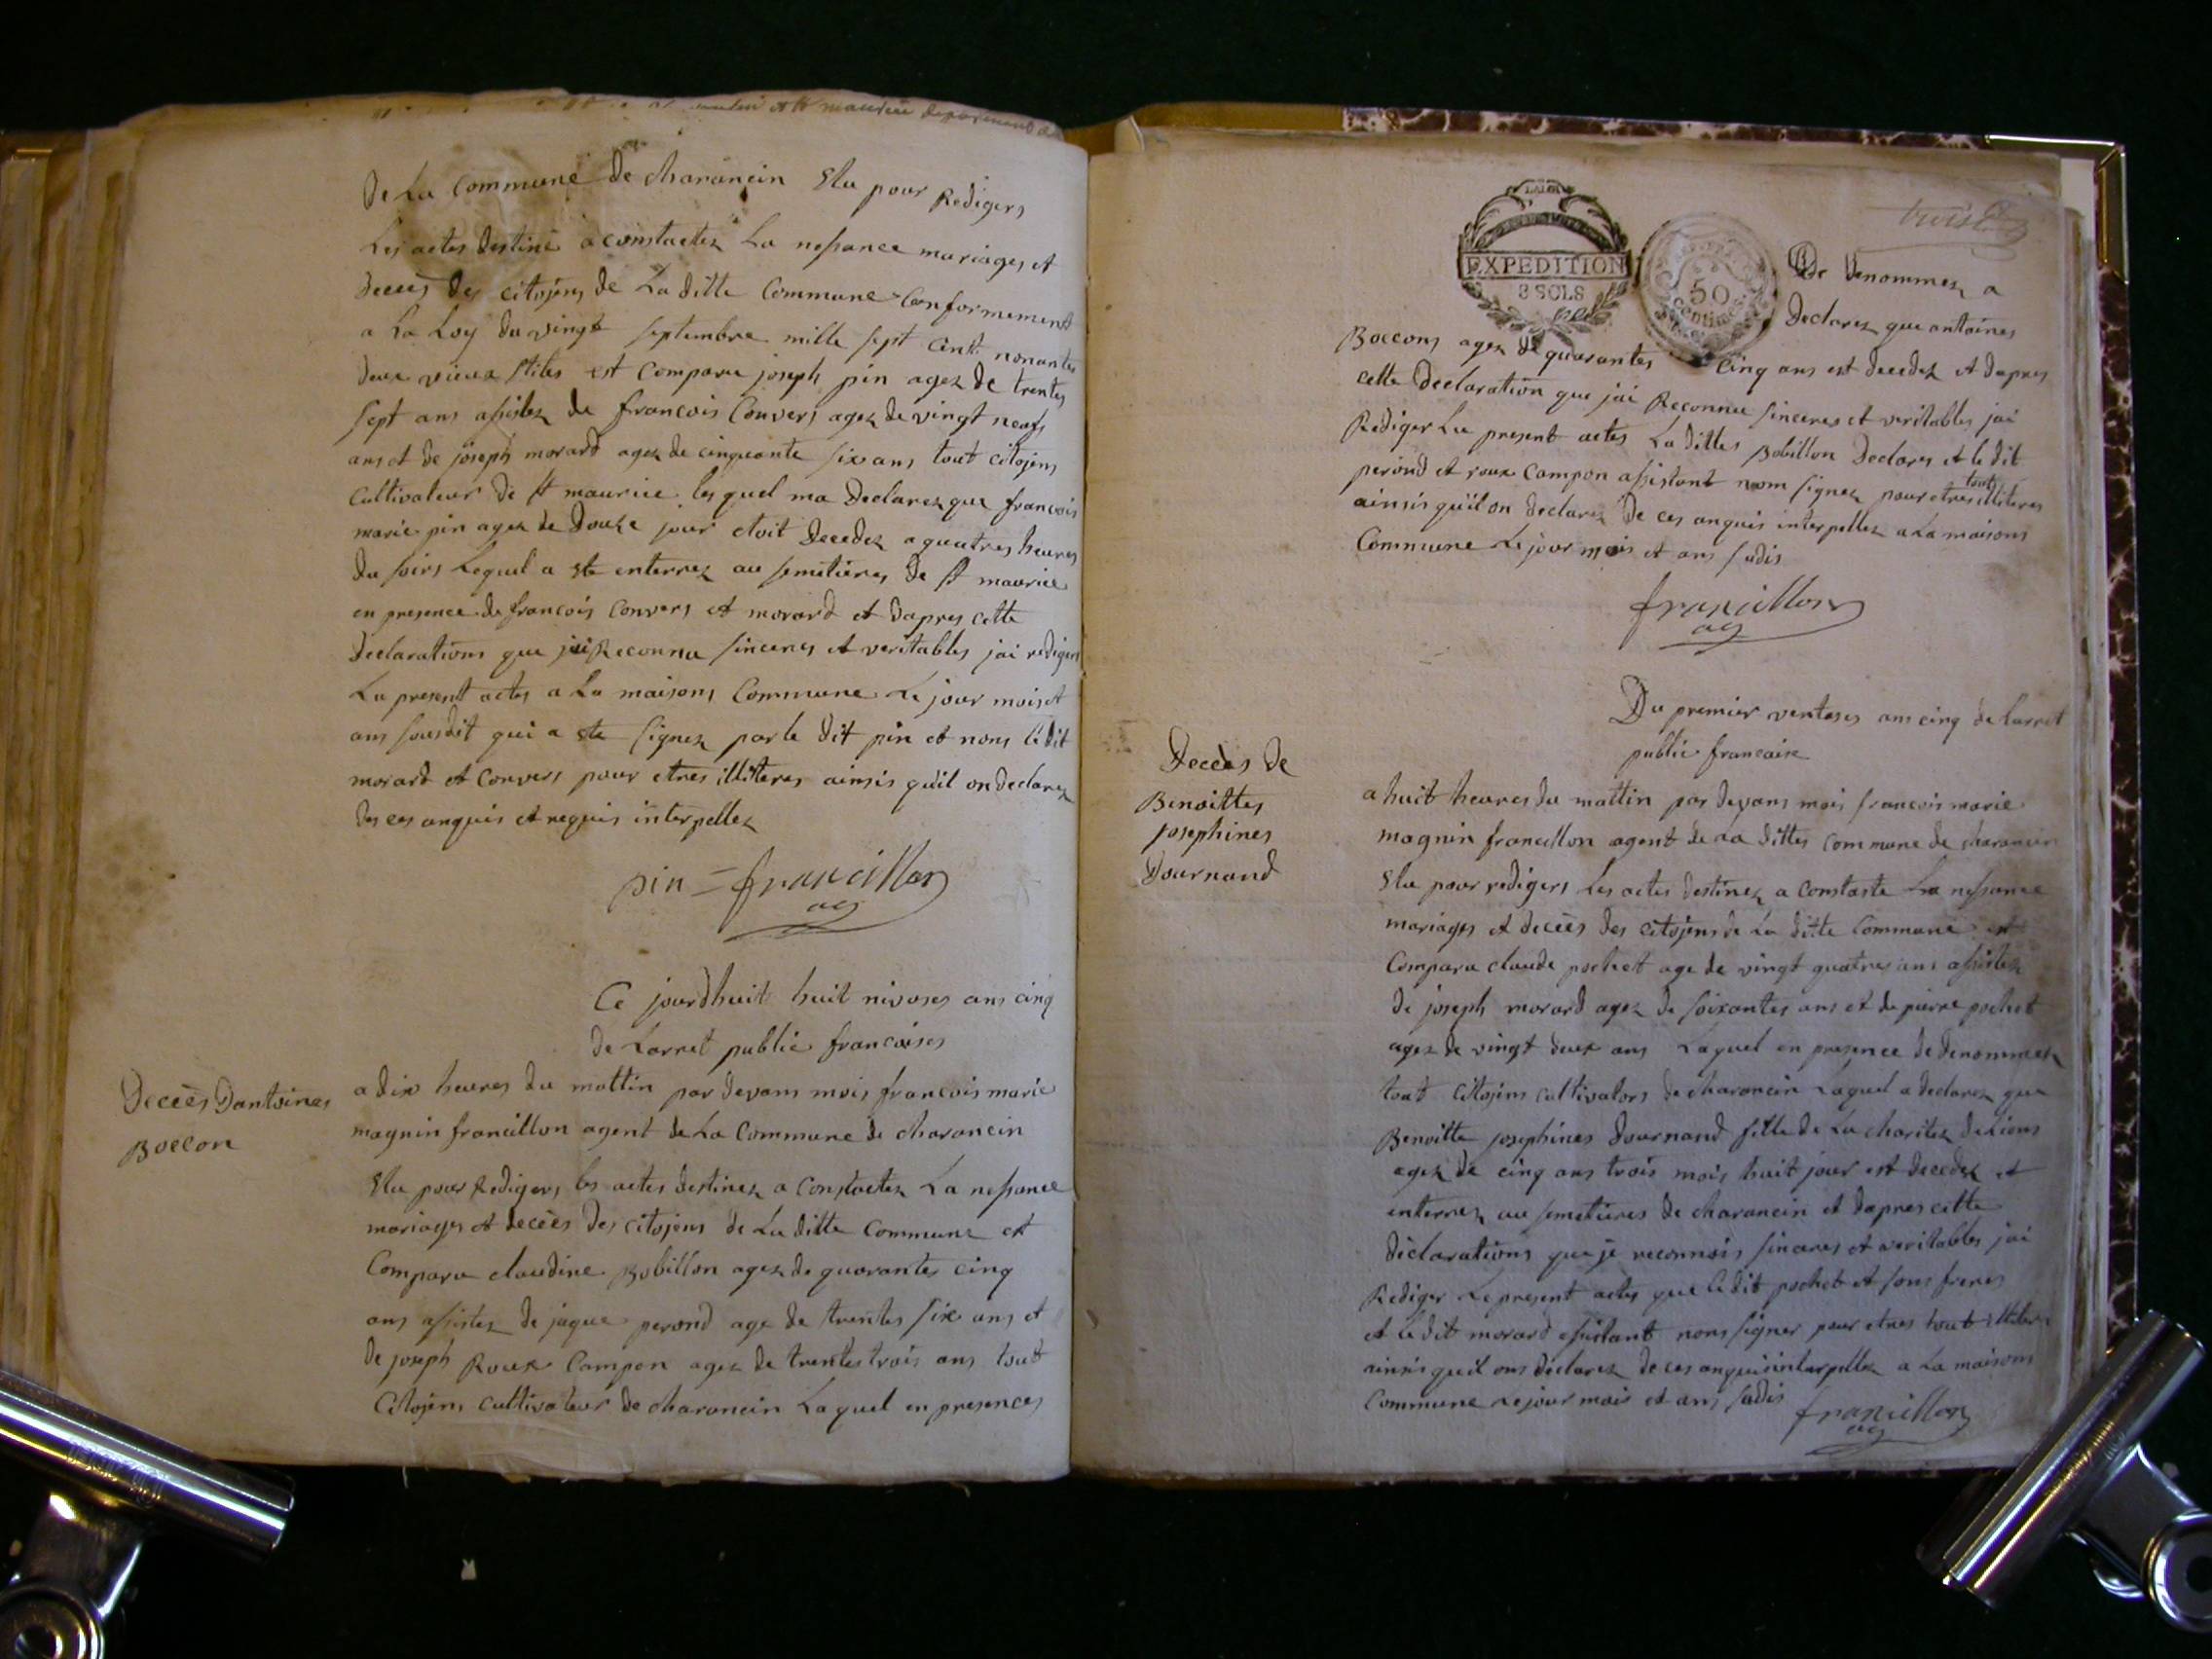 De La Commune de charancin Elu pour Redigers
Les actes destiné a constactez La nessance mariages et
deces des citojens de La ditte Commune Conformement
a La Loy du vingt septembre mille sept Cent nonantes
deux vieux stiles est Comparu joseph pin agez de trentes
sept ans assistez de francois Convers agez de vingt neufs
ans et de joseph morard agez de cinquante six ans tout citojens
Cultivateur de st maurice les quel ma Declarez que francois
marie pin agez de Douze jour etoit Decedez a quatres heures
du soirs Lequel a ete enterrez au semetieres de st maurice
en presence de francois Convers et morard et dapres cette
Declarations que jai Reconnu sinceres et veritables jai redigers
La present actes a La maisons Commune Le jour mois et
ans susdit qui a ete signez par le dit pin et nons le dit
morard et Convers pour etres illiteres ainsis quil on declarez
des ces anquis et requis interpellez
pin = francillon
ag
Ce jourdhuit huit nivoses ans cinq
de Larret public francoises
Decès Dantoines
Boccon
a dix heures du mattin par devans mois francois marie
magnin francillon agent de La Commune de charancin
Elu pour Redigers les actes destinez a Constactez La nessance
mariages et decès des citojens de La ditte Commune est
Comparu claudine Bobillon agez de quarantes cinq
ans assistez de jaque perond age de trentes six ans et
de joseph Roux Campon agez de trentes trois ans tout
Citojens cultivateur de charancin Laquel en presences
LA LOI
EXPEDITION
3 SOLS
50
Centimes
De Denommez a
Declarez que antoines
Boccons agez de quarantes Cinq ans est decedez et dapres
cette Declaration que jai Reconnu sinceres et veritables jai
Rediger Le present actes La dittes Bobillon Declares et le dit
perond et roux Campon assistant nom signez pour etres tout illiteres
ainsis quil on declarez De ces anquis interpellez a La maisons
Commune Le jour mois et ans sudis
francillon
ag
Du premier ventoses ans cinq de Larret
public francaise
Decès de
Benoittes
josephines
Dournand
a huit heures du mattin par devans mois francois marie
magnin francillon agent de La dittes Commune de charancin
Elu pour redigers Les actes destinez a Constaste La nessance
mariages et decès des citojens de La ditte Commune est
Comparu claude pochet age de vingt quatres ans assistez
de joseph morard agez de soixantes ans et de pierre pochet
agez de vingt deux ans Laquel en presence de denommez
tout citojens cultivators de charancin Laquel a declarez que
Benoitte josephines Dournand fille de La charitez de Lions
agez de cinq ans trois mois huit jour est decedez et
enterrez au semetieres de charancin et dapres cette
déclarations que je reconnois sinceres et veritables jai
Rediger Le present actes que le dit pochet et sons freres
et le dit morard assistant nons signer pour etres tout illiteres
ainsis quil ons déclarez de ces anquis interpellez a La maisons
Commune Le jour mois et ans sudis
francillon
ag